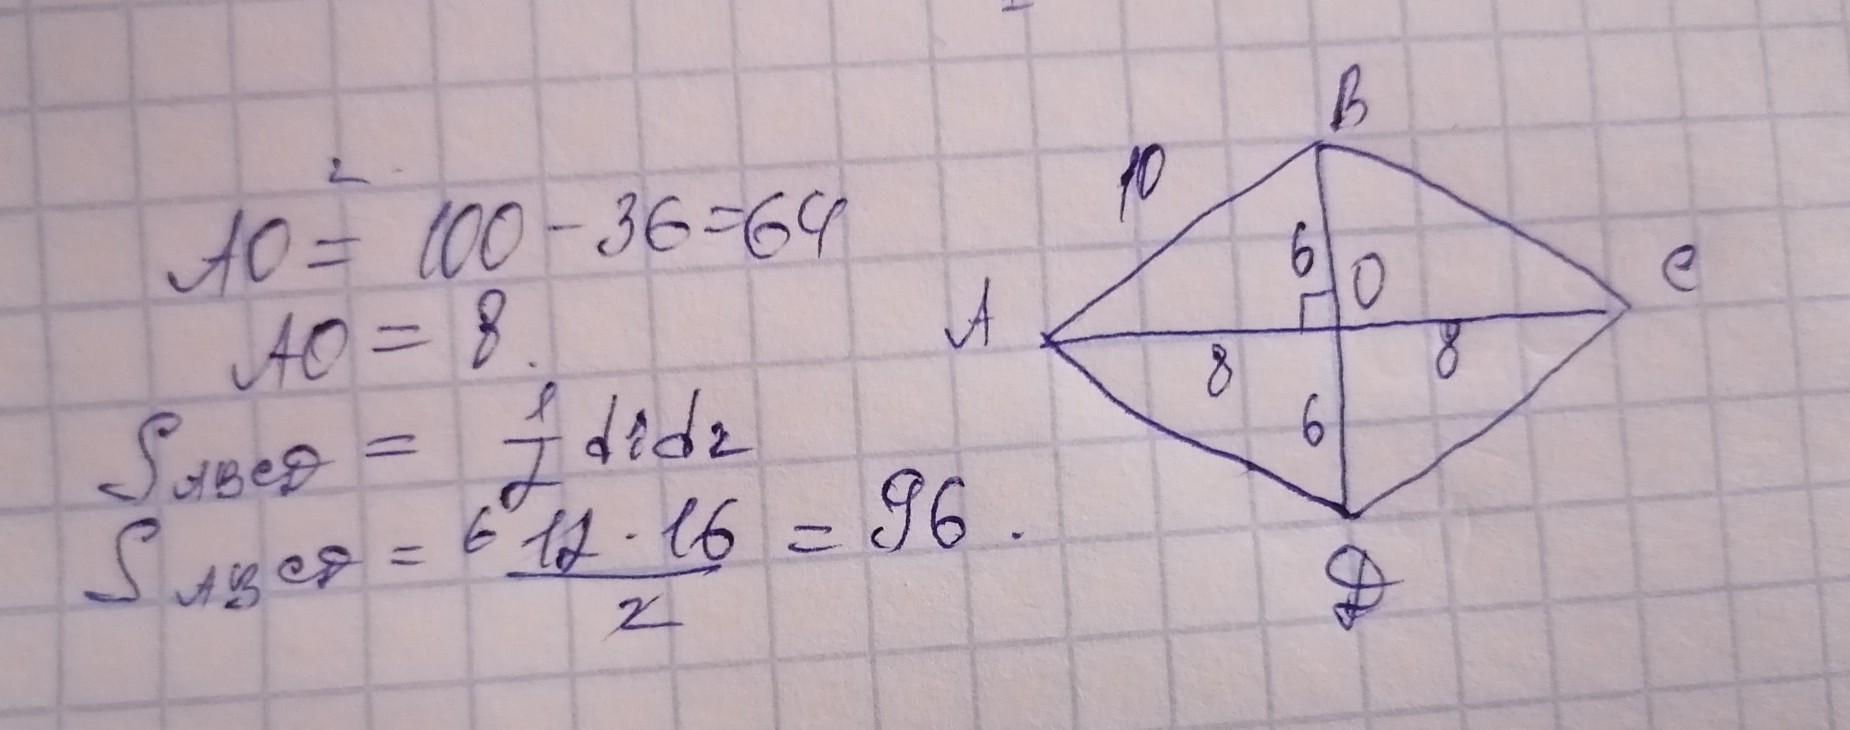 AO² = 100 - 36 = 64
AO = 8.
S ABCD = 1/2 d1d2
S ABCD = 6 12 · 16 / 2 = 96.
B
10
6
O
C
A
8
8
6
D